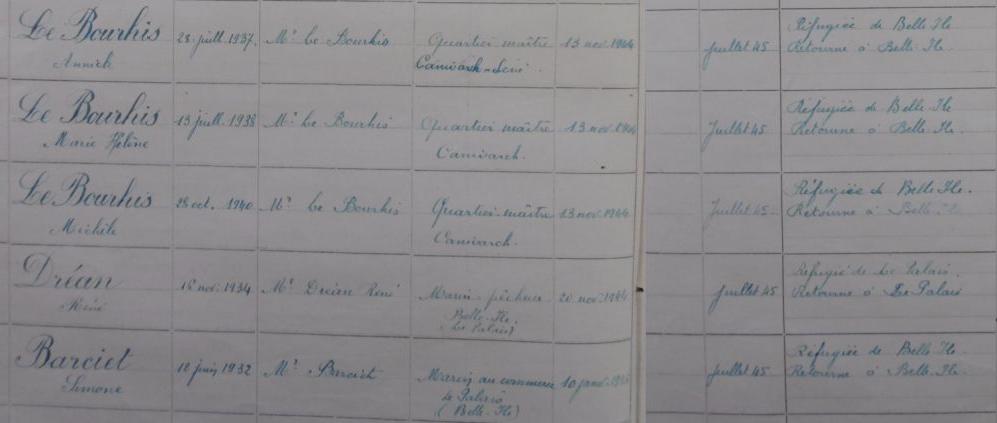 Le Bourhis
Annick
28 juill. 1937.
Mr Le Bourhis
Quartier maître
13 nov. 1944
Juillet 45
Réfugiée de Belle Ile
Retourne à Belle-Ile.
Le Bourhis
Marie Hélène
13 juill. 1938
Mr Le Bourhis
Quartier maître
13 nov. 1944
Juillet 45
Réfugiée de Belle-Ile
Retourne à Belle-Ile.
Le Bourhis
Michèle
28 oct. 1940
Mr Le Bourhis
Quartier-maître
13 nov. 1944
Juillet 45
Réfugiée de Belle-Ile.
Retourne à Belle-Ile
Dréan
René
nov. 1934
Mr Dréan René
Marin pêcheur
Belle-Ile
(Le Palais)
20 nov. 1944
Juillet 45
Réfugié de Le Palais.
Retourne à Le Palais
Barciet
Simone
18 juin 1932
Mr Barciet
Marin au commerce
Le Palais
(Belle-Ile)
10 janv.
Juillet 45
Réfugiée de Belle Ile
Retourne à Belle-Ile.